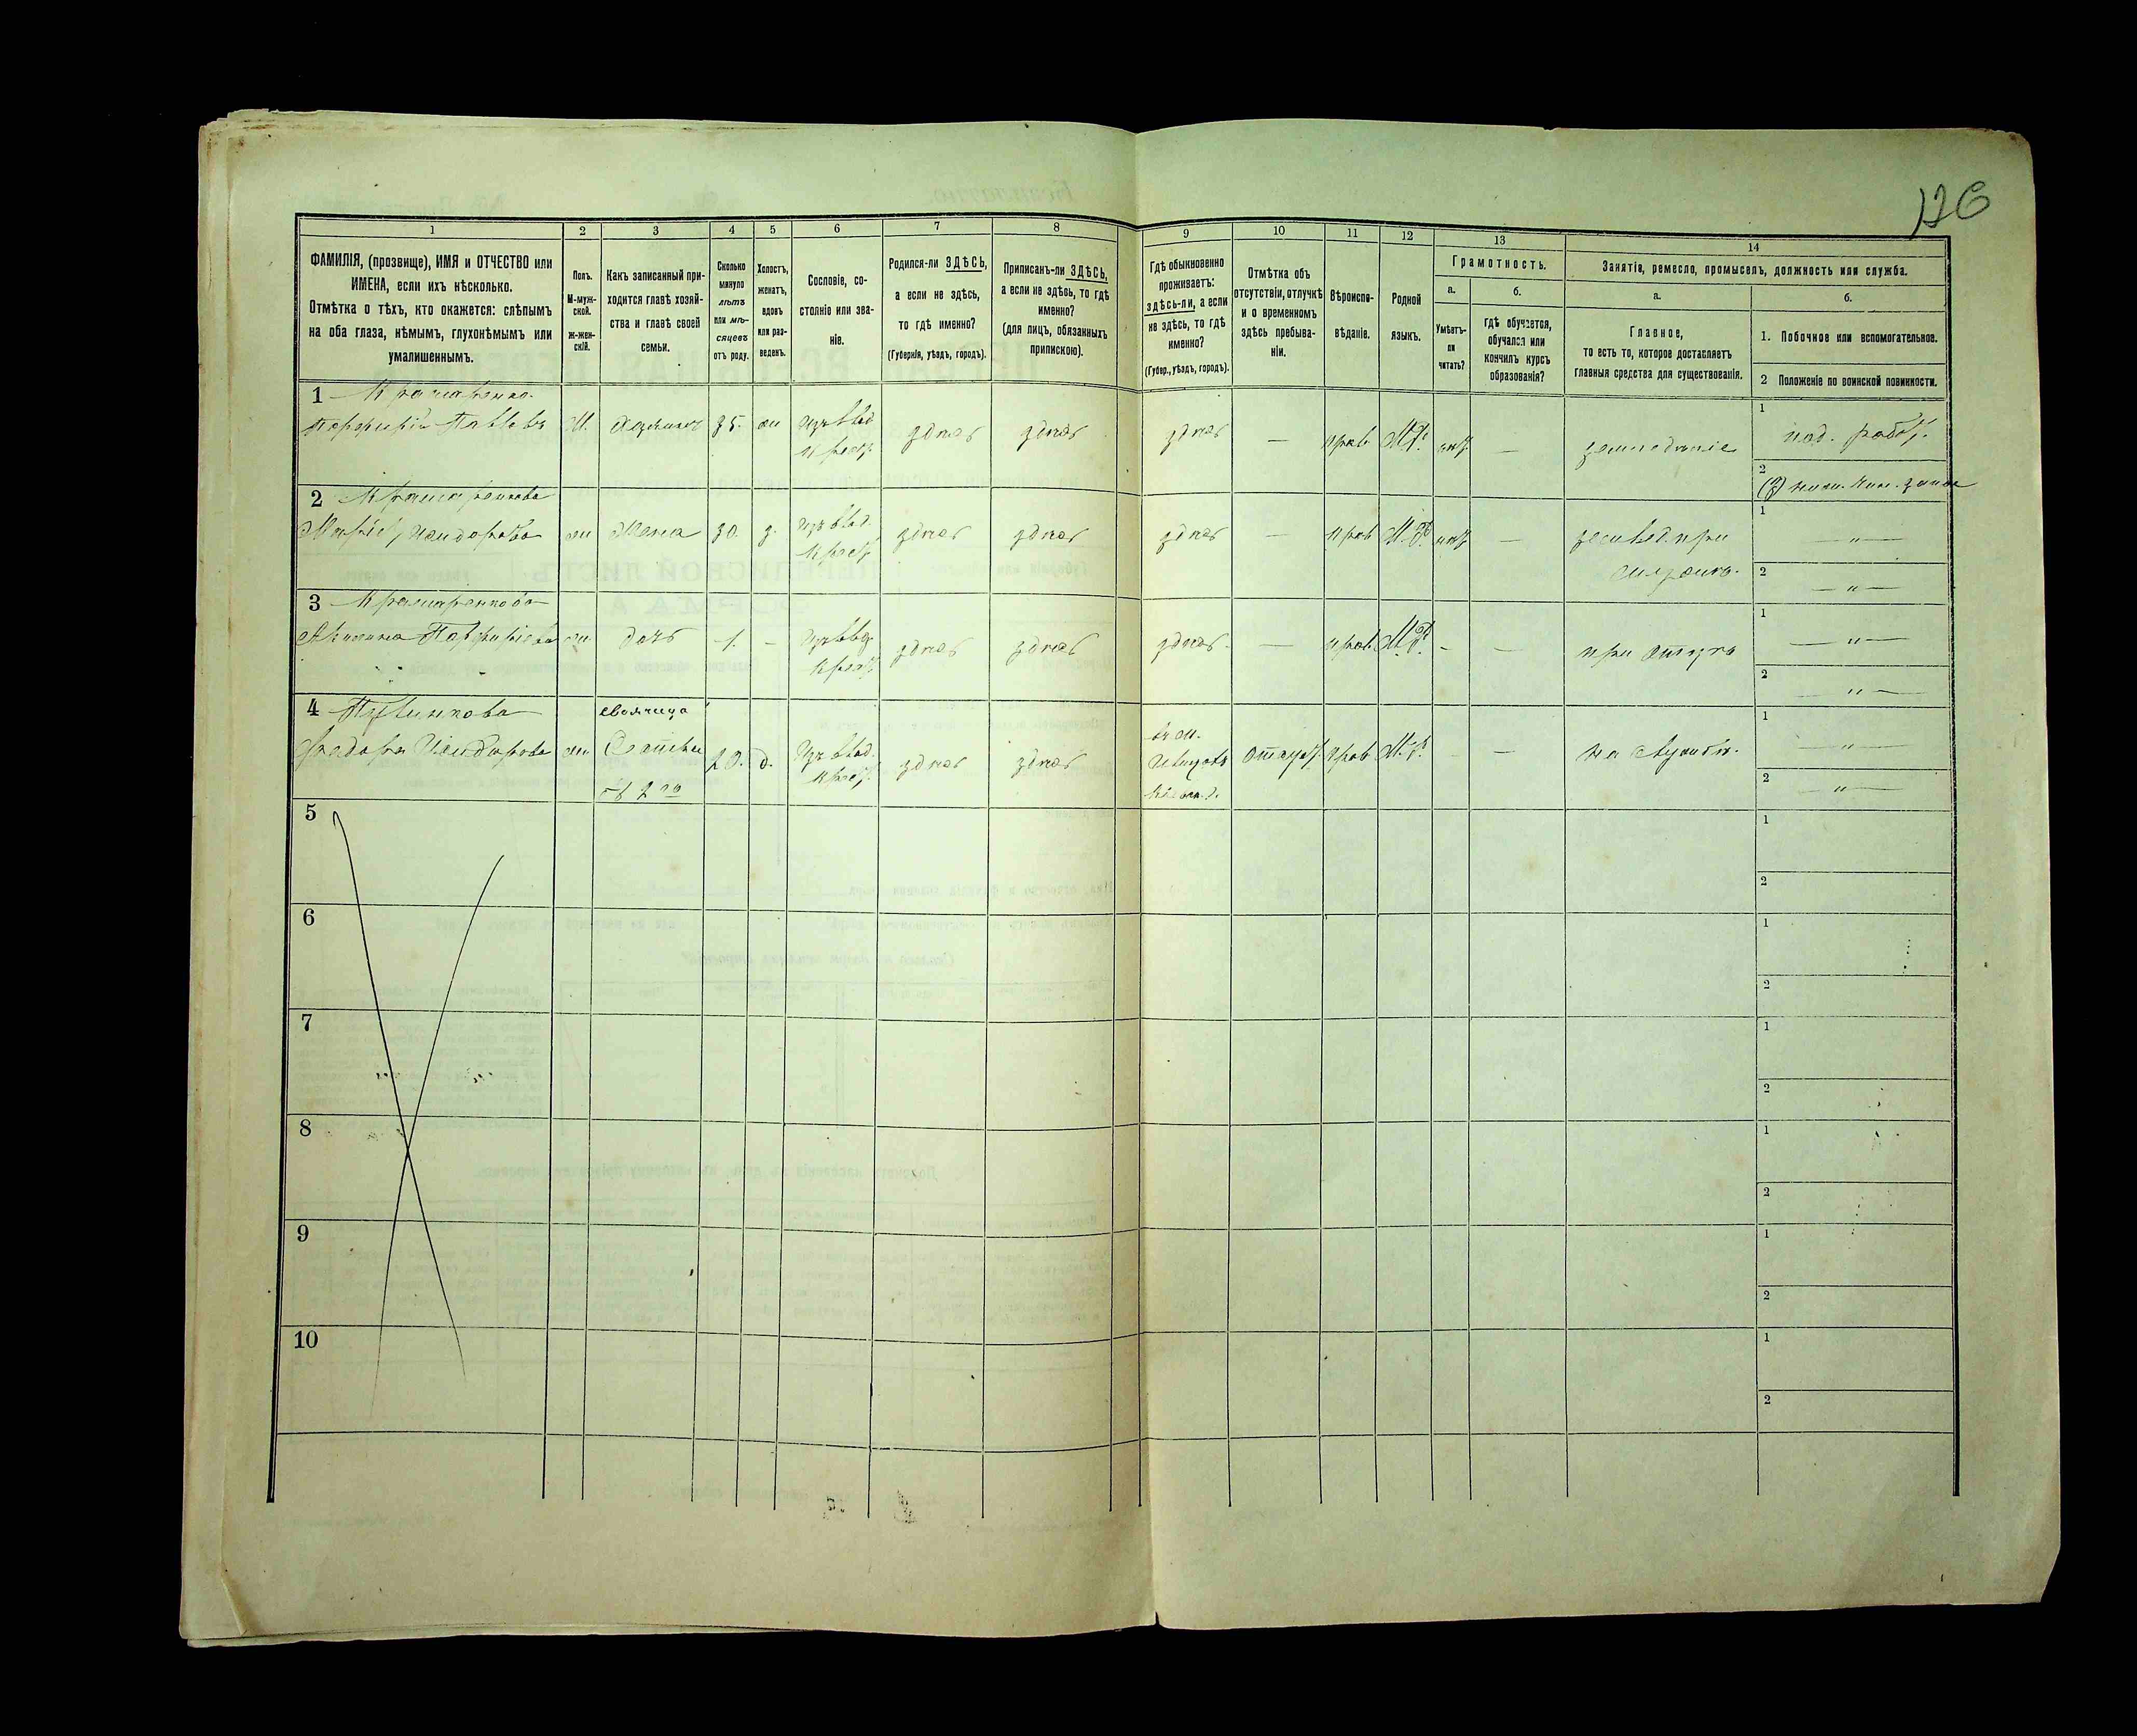 126
1 2 3 4 5 6 7 8 9 10 11 12 13 14
ФАМИЛІЯ, (прозвище), ИМЯ и ОТЧЕСТВО или
ИМЕНА, если ихъ нѣсколько.
Отмѣтка о тѣхъ, кто окажется: слѣпымъ
на оба глаза, нѣмымъ, глухонѣмымъ или
умалишеннымъ.
Полъ.
М-муж-
ской.
ж-жен-
скій.
Какъ записанный при-
ходится главѣ хозяй-
ства и главѣ своей
семьи.
Сколько
минуло
лѣтъ
или мѣ-
сяцевъ
отъ роду.
Холостъ,
женатъ,
вдовъ
или раз-
веденъ.
Сословіе, со-
стояніе или зва-
ніе.
Родился-ли ЗДѢСЬ,
а если не здѣсь,
то гдѣ именно?
(Губернія, уѣздъ, городъ).
Приписанъ-ли ЗДѢСЬ,
а если не здѣсь, то гдѣ
именно?
(для лицъ, обязанныхъ
припискою).
Гдѣ обыкновенно
проживаетъ:
здѣсь-ли, а если
не здѣсь, то гдѣ
именно?
(Губер., уѣздъ, городъ).
Отмѣтка объ
отсутствіи, отлучкѣ
и о временномъ
здѣсь пребыва-
ніи.
Вѣроиспо-
вѣданіе.
Родной
языкъ.
Грамотность.
а.
Умѣетъ-
ли
читать?
б.
гдѣ обучается,
обучался или
кончилъ курсъ
образованія?
Занятіе, ремесло, промыселъ, должность или служба.
а.
Главное,
то есть то, которое доставляетъ
главныя средства для существованія.
б.
1. Побочное или вспомогательное.
2 Положеніе по воинской повинности.
1 Крамаренко
Порфирій Павловъ М. Хозяинъ 35. жн Изъ влад. крест. здѣсь здѣсь здѣсь — прав М.Р. нѣт — земледѣліе 1 под. работ.
2
2 Крамаренкова
Марія жн Жена 30. з. Изъ влад. крест. здѣсь здѣсь здѣсь — прав М.Р. нѣт — 1 — " —
2 — " —
3 Крамаренкова
Акилина Порфиріева жн дочь 1. — Изъ влад. крест. здѣсь здѣсь здѣсь — прав М.Р. - — при отцѣ 1 — " —
2 — " —
4
свояченица
жн д. Изъ влад. крест. здѣсь здѣсь прав М.Р. — 1 — " —
2 — " —
5 1
2
6 1
2
7 1
2
8 1
2
9 1
2
10 1
2